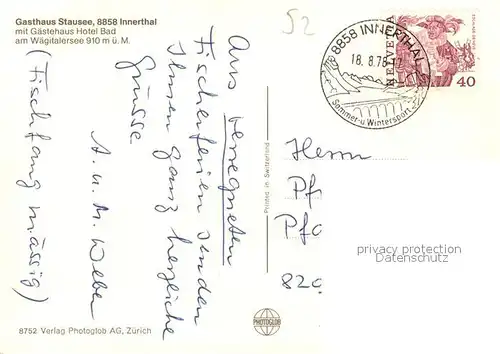 Gasthaus Stausee, 8858 Innerthal
mit Gästehaus Hotel Bad
am Wägitalersee 910 m ü. M.
52
8858 INNERTHAL
18. 8. 78-17
Sommer-u Wintersport
HELVETIA
40
Aus verregneten
Fischerferien senden
Ihnen ganz herzliche
Grüsse
A. u. M. Weber
(Fischfang mässig)
Printed in Switzerland
Herrn
Pf
Pfa
820
privacy protection
Verwendung
PHOTOGLOB
8752 Verlag Photoglob AG, Zürich